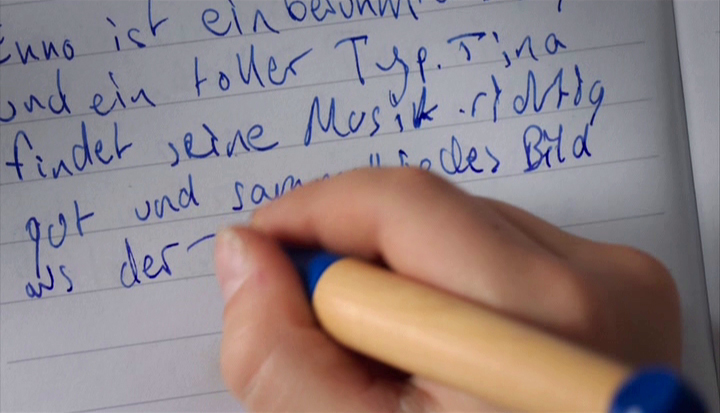 Enno ist ein
und ein toller Typ. Tina
findet seine Musik richtig
gut und jedes Bild
aus der